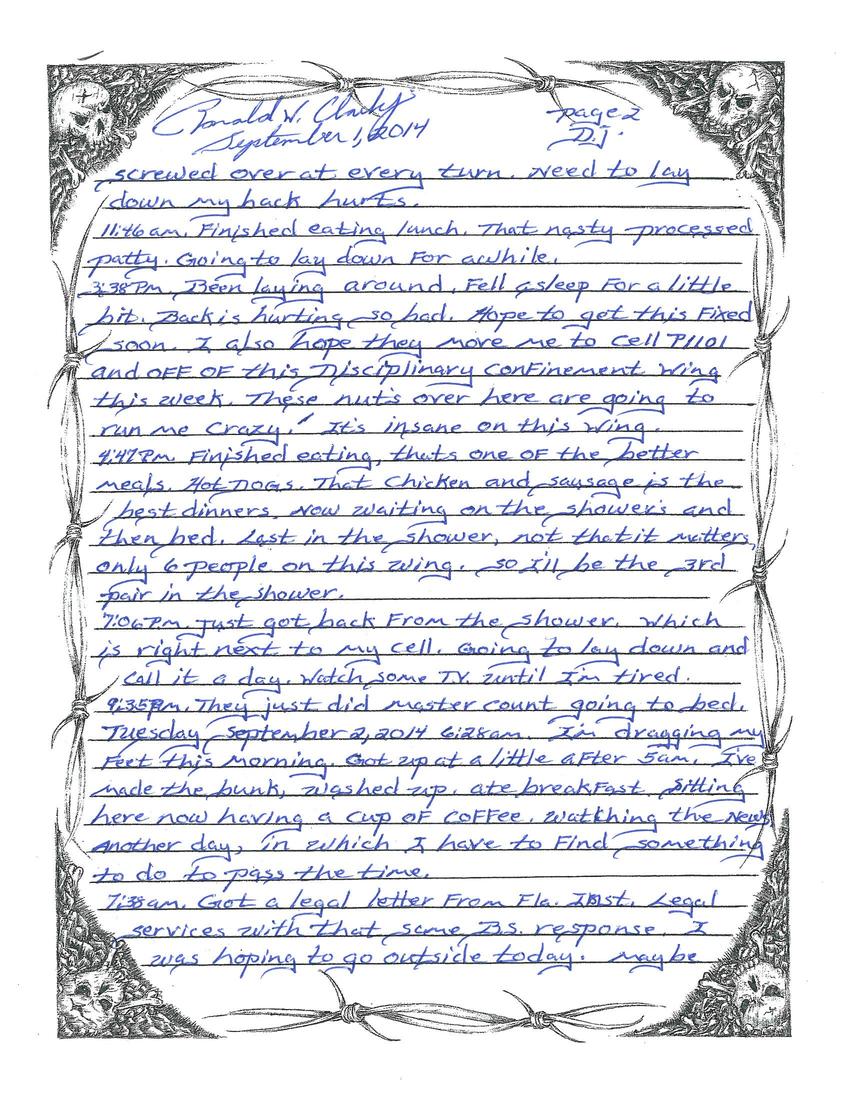 Ronald W. Clark Jr.
page 2
September 1, 2014
D.J.
screwed over at every turn. Need to lay
down my back hurts.
11:46 am. Finished eating lunch. That nasty processed
patty. Going to lay down For awhile.
3:38 Pm. Been laying around. Fell asleep For a little
bit. Back is hurting so bad. Hope to get this Fixed
soon. I also hope they move me to cell P1101
and OFF OF this Disciplinary ConFinement Wing
this week. These nut's over here are going to
run me crazy! It's insane on this wing.
4:47 Pm. Finished eating, thats one OF the better
meals. Hot DOGs. That Chicken and sausage is the
best dinners. Now waiting on the shower's and
then bed. Last in the shower, not that it matters,
only 6 people on this wing. so I'll be the 3rd
pair in the shower.
7:06 Pm. just got back From the shower. Which
is right next to my cell. Going to lay down and
call it a day. Watch some T.V. until I'm tired.
9:35 Pm. They just did master count going to bed.
Tuesday September 2, 2014 6:28 am. I'm dragging my
Feet this morning. Got up at a little aFter 5 am. I've
made the bunk, washed up. ate breakFast. Sitting
here now having a cup OF COFFee. watching the News
Another day, in which I have to Find something
to do to pass the time.
7:38 am. Got a legal letter From Fla. Inst. Legal
services with that same B.S. response. I
was hoping to go outside today. Maybe